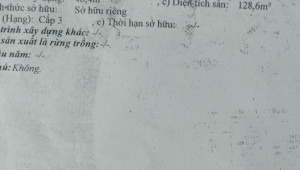 c) Diện tích sàn: 128,6m²
thức sở hữu: Sở hữu riêng
(Hạng): Cấp 3 , e) Thời hạn sở hữu: -/-
trình xây dựng khác: -/-
sản xuất là rừng trồng: -/-
năm: -/-
Không.